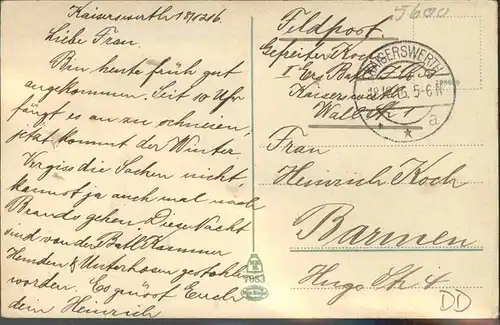 Kaiserswerth 18/12 16.
Liebe Frau.
Bin heute früh gut
angekommen. Seit 10 Uhr
fängt es an zu schneien,
jetzt kommt der Winter.
Vergiss die Sachen nicht,
kannst ja auch mal nach
Brands gehen. Diese Nacht
sind von der Batl. Kammer
Hemden & Unterhosen gestohlen
worden. Es grüsst Euch
dein Heinrich
5600
Feldpost.
Gefreiter Koch
I Ers. Batl.
Kaiserswerth
Wall Str. 1
KAISERSWERTH
18.12.16. 5-6 N
* a
Frau
Heinrich Koch
Barmen
Hugo Str. 4
7053
DD